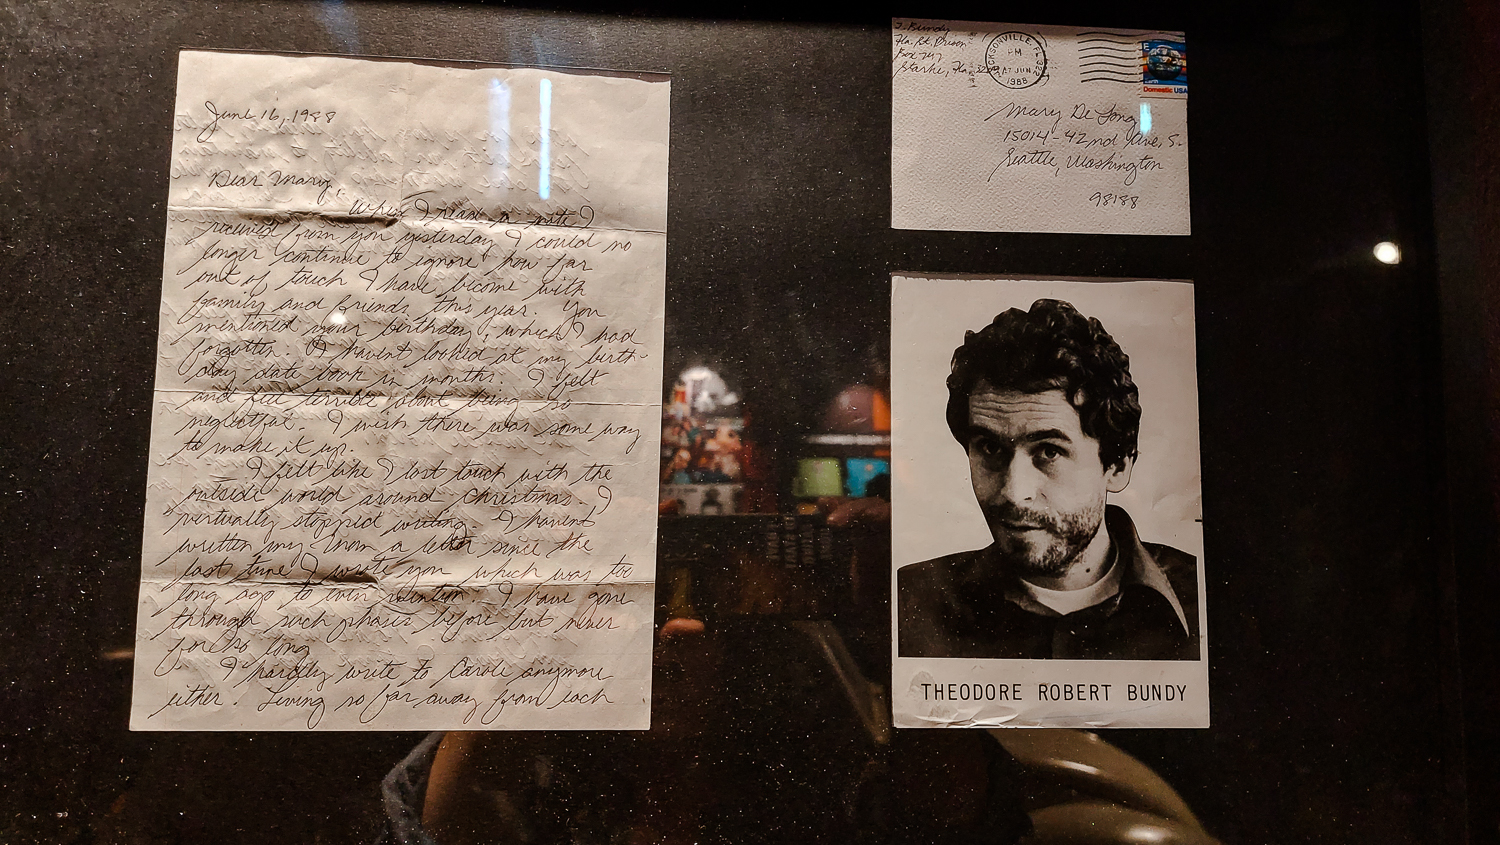 June 16, 1988
Dear Mary,
When I read a note I
received from you yesterday I could no
longer continue to ignore how far
out of touch I have become with
family and friends this year. You
mentioned your birthday, which I had
forgotten. I havent looked at my birth-
day date book in months. I felt
and feel terrible about being so
neglectful. I wish there was some way
to make it up.
I felt like I lost touch with the
outside world around Christmas. I
virtually stopped writing. I havent
written my mom a letter since the
last time I wrote you which was too
long ago to even mention. I have gone
through such phases before but never
for so long
I hardly write to Carole anymore
either. Living so far away from each
T. Bundy
Fla. St. Prison
Box 747
Starke, Fla.
JACKSONVILLE, FL 322
PM
17 JUN
1988
E
Earth
Domestic USA
Mary De Long
15014-42nd Ave. S.
Seattle, Washington
98188
THEODORE ROBERT BUNDY